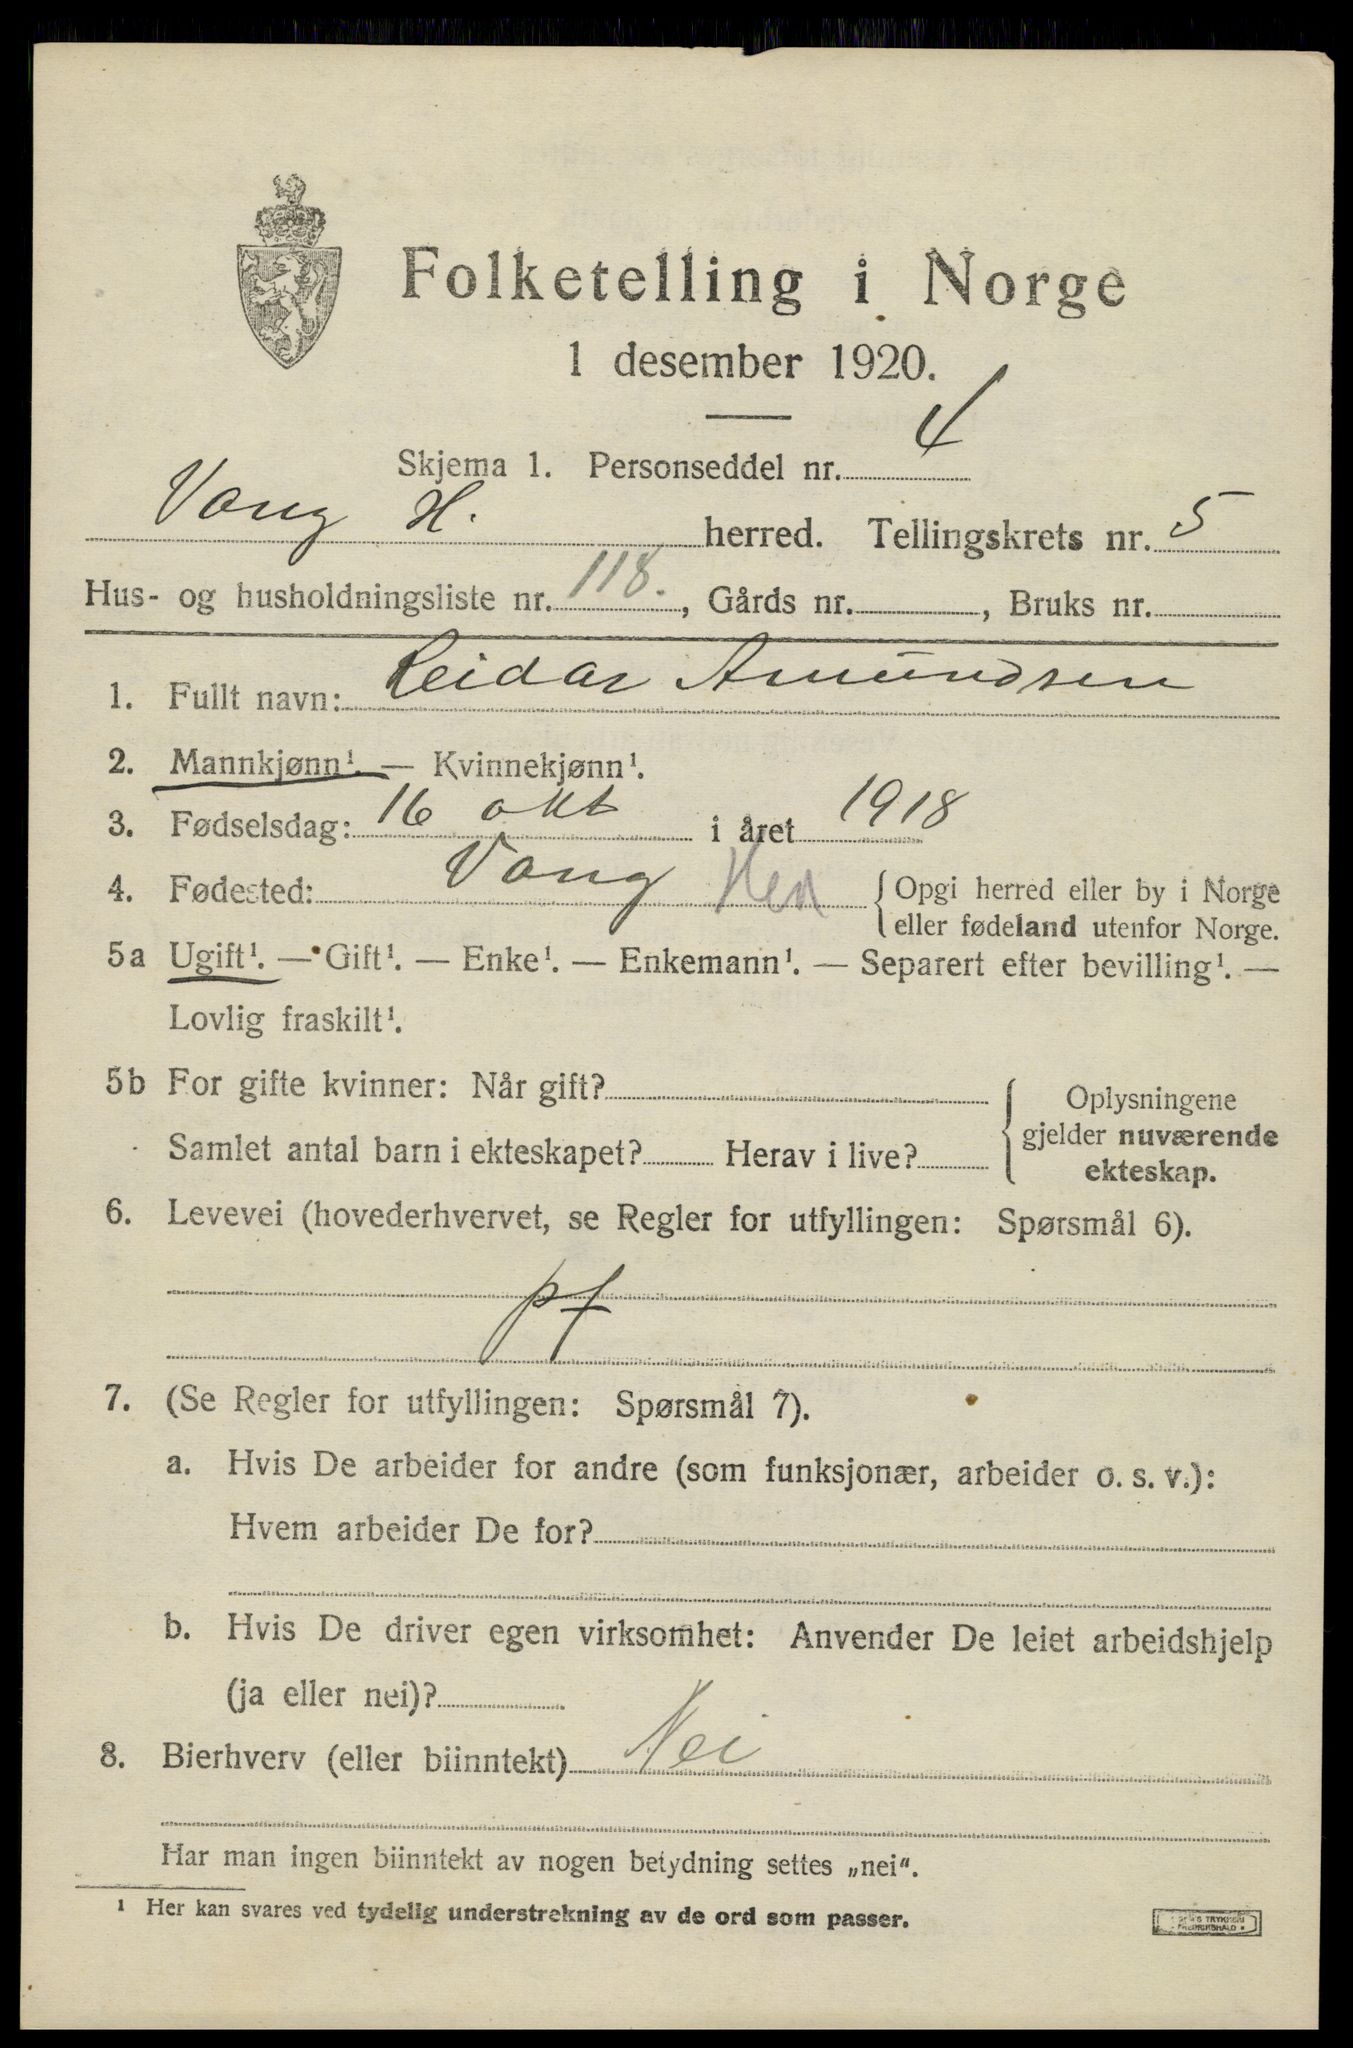 Folketelling i Norge
1 desember 1920.
Skjema 1. Personseddel nr. 4
Vang H. herred. Tellingskrets nr. 5
Hus- og husholdningsliste nr. 118., Gårds nr. , Bruks nr.
1. Fullt navn: Reidar Amundsen
2. Mannkjønn¹. — Kvinnekjønn¹.
3. Fødselsdag: 16 okt i året 1918
4. Fødested: Vang Hed {Opgi herred eller by i Norge
eller fødeland utenfor Norge.
5a Ugift¹. — Gift¹. — Enke¹. — Enkemann¹. — Separert efter bevilling¹. —
Lovlig fraskilt¹.
5b For gifte kvinner: Når gift?
Samlet antal barn i ekteskapet? Herav i live?
Oplysningene
gjelder nuværende
ekteskap.
6. Levevei (hovederhvervet, se Regler for utfyllingen: Spørsmål 6).
pf
7. (Se Regler for utfyllingen: Spørsmål 7).
a. Hvis De arbeider for andre (som funksjonær, arbeider o. s. v.):
Hvem arbeider De for?
b. Hvis De driver egen virksomhet: Anvender De leiet arbeidshjelp
(ja eller nei)?
8. Bierhverv (eller biinntekt) Nei
Har man ingen biinntekt av nogen betydning settes „nei“.
¹ Her kan svares ved tydelig understrekning av de ord som passer.